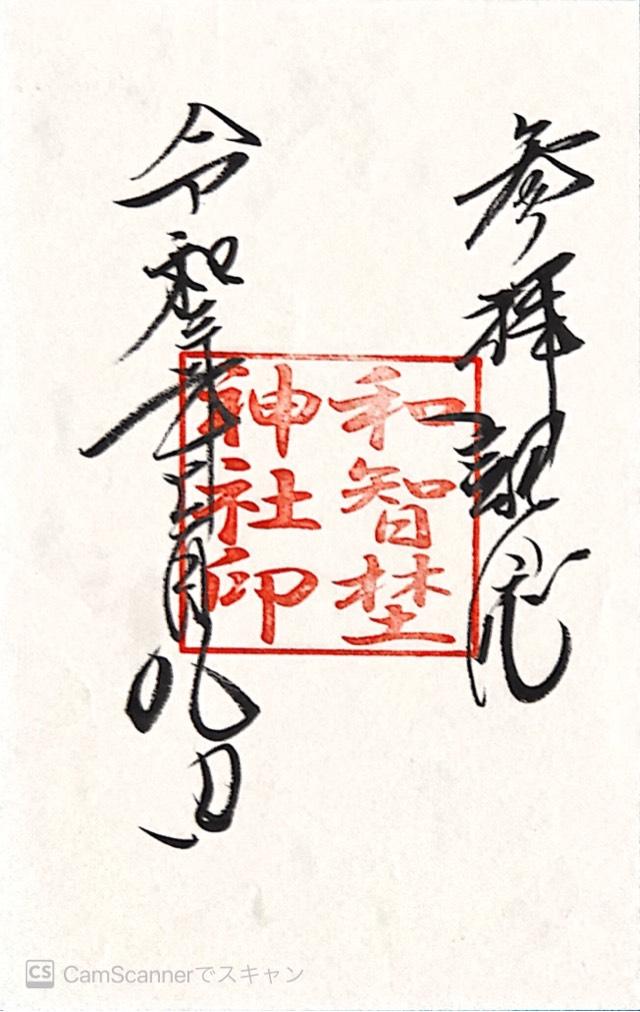 参拝記念
和智埜
神社印
令和年月九日
CamScannerでスキャン